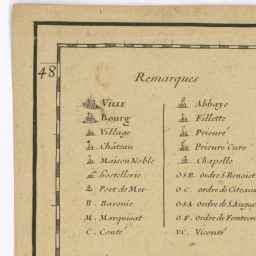 48
Remarques
Ville
Bourg
Village
Château
Maison Noble
hostellerie
Port de Mer
B. Baronie
M. Marquisat
C. Conté
Abbaye
Fillette
Prieuré
Prieuré Cure
Chapelle
O.S.B. ordre S. Benoist
O.C. ordre de Citeaux
O.S.A. Ordre de S. Augus
O.F. Ordre de Fontevr
V.C. Viconté